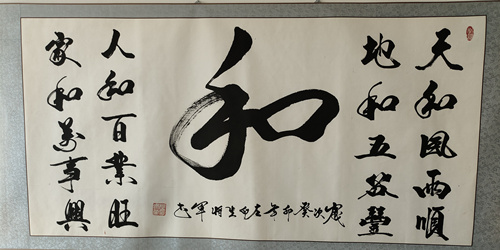 天和風雨順
地和五谷豐
和
人和百業旺
家和萬事興
歲次癸卯年